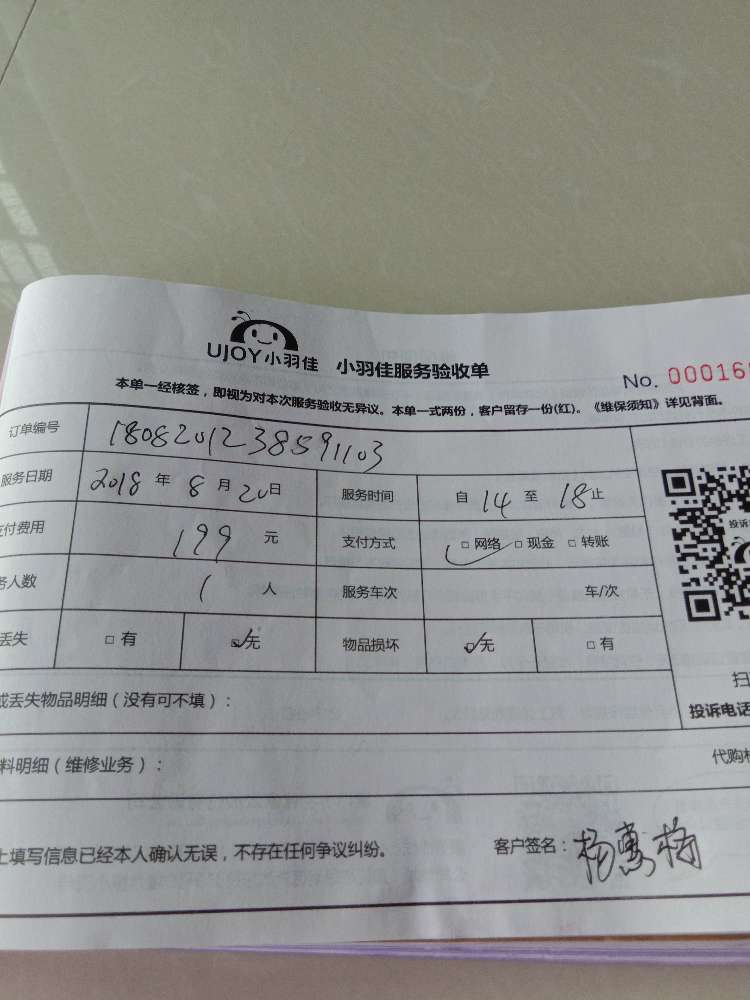 UJOY小羽佳 小羽佳服务验收单
No. 00016
本单一经核签，即视为对本次服务验收无异议。本单一式两份，客户留存一份(红)。《维保须知》详见背面。
订单编号 1808201238591103
服务日期 2018 年 8 月 20 日 服务时间 自 14 至 18 止
付费用 199 元 支付方式 □ 网络 □ 现金 □ 转账
务人数 1 人 服务车次 车/次
丢失 □ 有 □ 无 物品损坏 □ 无 □ 有
投诉
扫
或丢失物品明细（没有可不填）：
投诉电话
料明细（维修业务）：
代购
上填写信息已经本人确认无误，不存在任何争议纠纷。 客户签名：杨惠梅